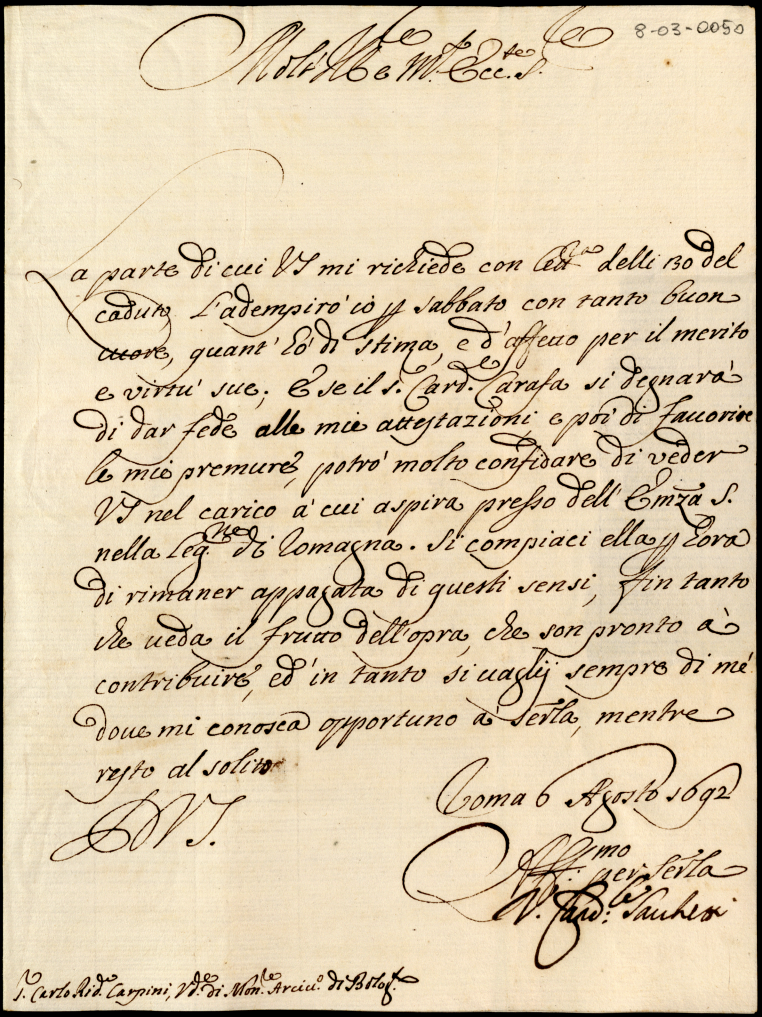 8-03-0050
Molt' Ill.re e m.to Ecc.te S.re
La parte di cui VS mi richiede con l'
delli 30 del
caduto, l'adempirò io p sabbato con tanto buon
cuore, quant' hò di stima, e d'affetto per il merito
e virtù sue; E se il S. Card.le Carafa si degnarà
di dar fede alle mie attestazioni, e poi di favorire
le mie premure, potrò molto confidare di veder
VS nel carico à cui aspira presso dell' Emza S.
nella Leg.ne di Romagna. Si compiaci ella p hora
di rimaner appagata di questi sensi, fin tanto
che veda il frutto dell'opra, che son pronto à
contribuire, ed in tanto si vaglij sempre di mè
dove mi conosca opportuno à serla, mentre
resto al solito
D VS.
Roma 6 Agosto 1692
Aff.mo per serla
Card.le
S. Carlo Rid. Carpini, Vd.re di Mon.re Arciv.o di Bolog.